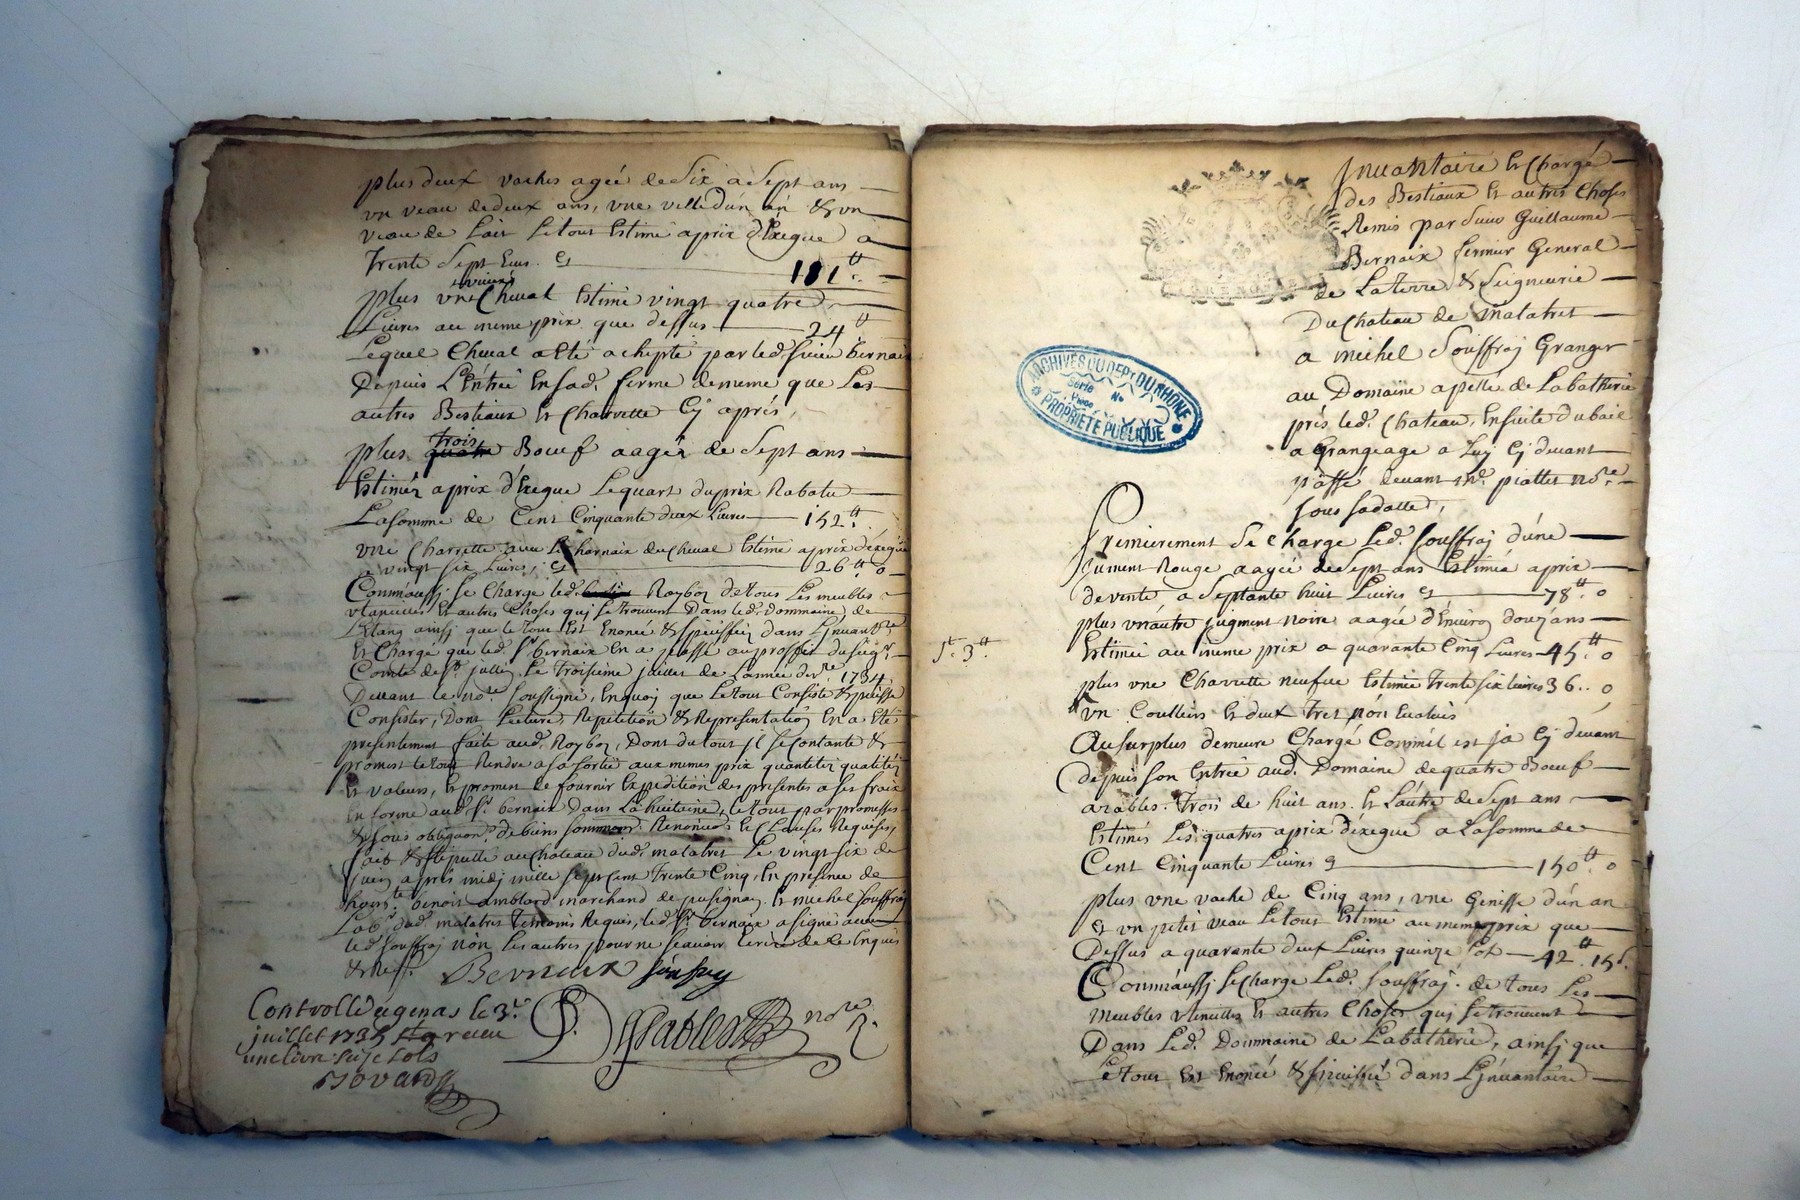 plus deux vaches agée de Six a Sept ans
un veau de deux ans, une velle d'un an & un
veau de Lait Le tout Estimé a prix d'Exegue a
Trente Sept Ecus. Cy 111tt
vieux
plus un Cheval Estimé vingt quatre
Livres au meme prix que dessus 24tt
Lequel Cheval a Eté achepté par led. sieur bernaix
Depuis L'Entrée En sad. ferme de meme que Les
autres Bestiaux Et Charrette Cy aprés,
trois
plus quatre Boeuf aagéz de Sept ans
Estiméz a prix d'Exegue Le quart du prix Rabatu
La somme de Cent Cinquante deux Livres 152tt
une Charrette avec Le harnaix du Cheval Estimé a prix d'exegue
a vingt six Livres, Cy 26tt 0
Comm'aussj se Charge led. Roybon de tous Les meubles
utancilles Et autres Choses quj se trouvent Dans led. dommaine de
L'Etang ainsj que le tout Est Enoncé & speciffiez dans L'jnvantre
Et Charge que led. Sr bernaix En a passé au proffit du seigr
Comte de St jullin Le Troisieme juillet de L'année derre 1734
Devant le nore soussigné, En quoj que Le tout Consiste & puisse
Consister, Dont Lecture, Repetition & Representation En a Eté
presentement faite aud. Roybon, Dont du tout jl se Contante &
promest le tout Rendre a sa sortie aux mêmes prix quantitéz qualitéz
Et valeurs, Et promest de fournir Expedition des presentes a ses fraix
En forme aud. Sr bernaix Dans La huitaine, Le tout par promesses
& sous obligaon de biens Renonceo Et Clauses Requises,
fait & stipullé au Chateau dud. malatret Le vingt six de
juin aprés midj mille sept Cent Trente Cinq, En presence de
benoit amblard marchand de pusignan Et michel souffraj
Lab. dud. malatret temoins Requis, led. Sr bernaix a signé avec
led. souffraj non Les autres pour ne sçavoir Ecrire de ce Enquis
& Req.
Bernaix soufray
Controllé a genas le 3e
juillet 1735 receu
une livre seize sols
Bovard
nore
Jnvantaire Et Chargé
des Bestiaux Et autres Choses
Remis par Sieur Guillaume
Bernaix fermier General
de La terre & Seigneurie
Du Chateau de malatret
a michel Souffraj Granger
au Domaine apellé de La batherie
prés led. Chateau, Ensuite du bail
a Grangeage a Luj Cj devant
passé devant Me. piattet nore.
sous sa datte,
GRENOBLE
ARCHIVES DU DEPT DU RHONE
Série No
PROPRIETE PUBLIQUE
Premierement Se Charge Led. Souffraj d'une
Jument Rouge aagée de Sept ans Estimée a prix
de vente, a Septante huit Livres Cy 78tt 0
plus un autre jugment noire aagée d'Environ douz ans
Estimée au meme prix a quarante Cinq Livres 45tt 0
3tt
plus une Charrette neufve Estimée Trente six livres 36.. 0
un Coullier Et deux Tret non Evalués
Au surplus demeure Chargé Comm'il est ja Cj devant
depuis son Entrée aud. Domaine de quatre Boeuf
arables. Trois de huit ans. Et L'autre de Sept ans
Estimés Les quatres a prix d'éxegue a La somme de
Cent Cinquante Livres Cy 150tt 0
plus une vache de Cinq ans, une Genisse d'un an
Et un petit veau Le tout Estimé au meme prix que
Dessus a quarante deux Livres quinze sols 42tt 15s.
Comm'aussj se Charge Led. Souffraj. de tous Les
meubles utencilles Et autres Choses quj se trouvent
Dans Led. Dommaine de La batherie, ainsj que
Le tout Est Enoncé & speciffié dans L'jnvantaire